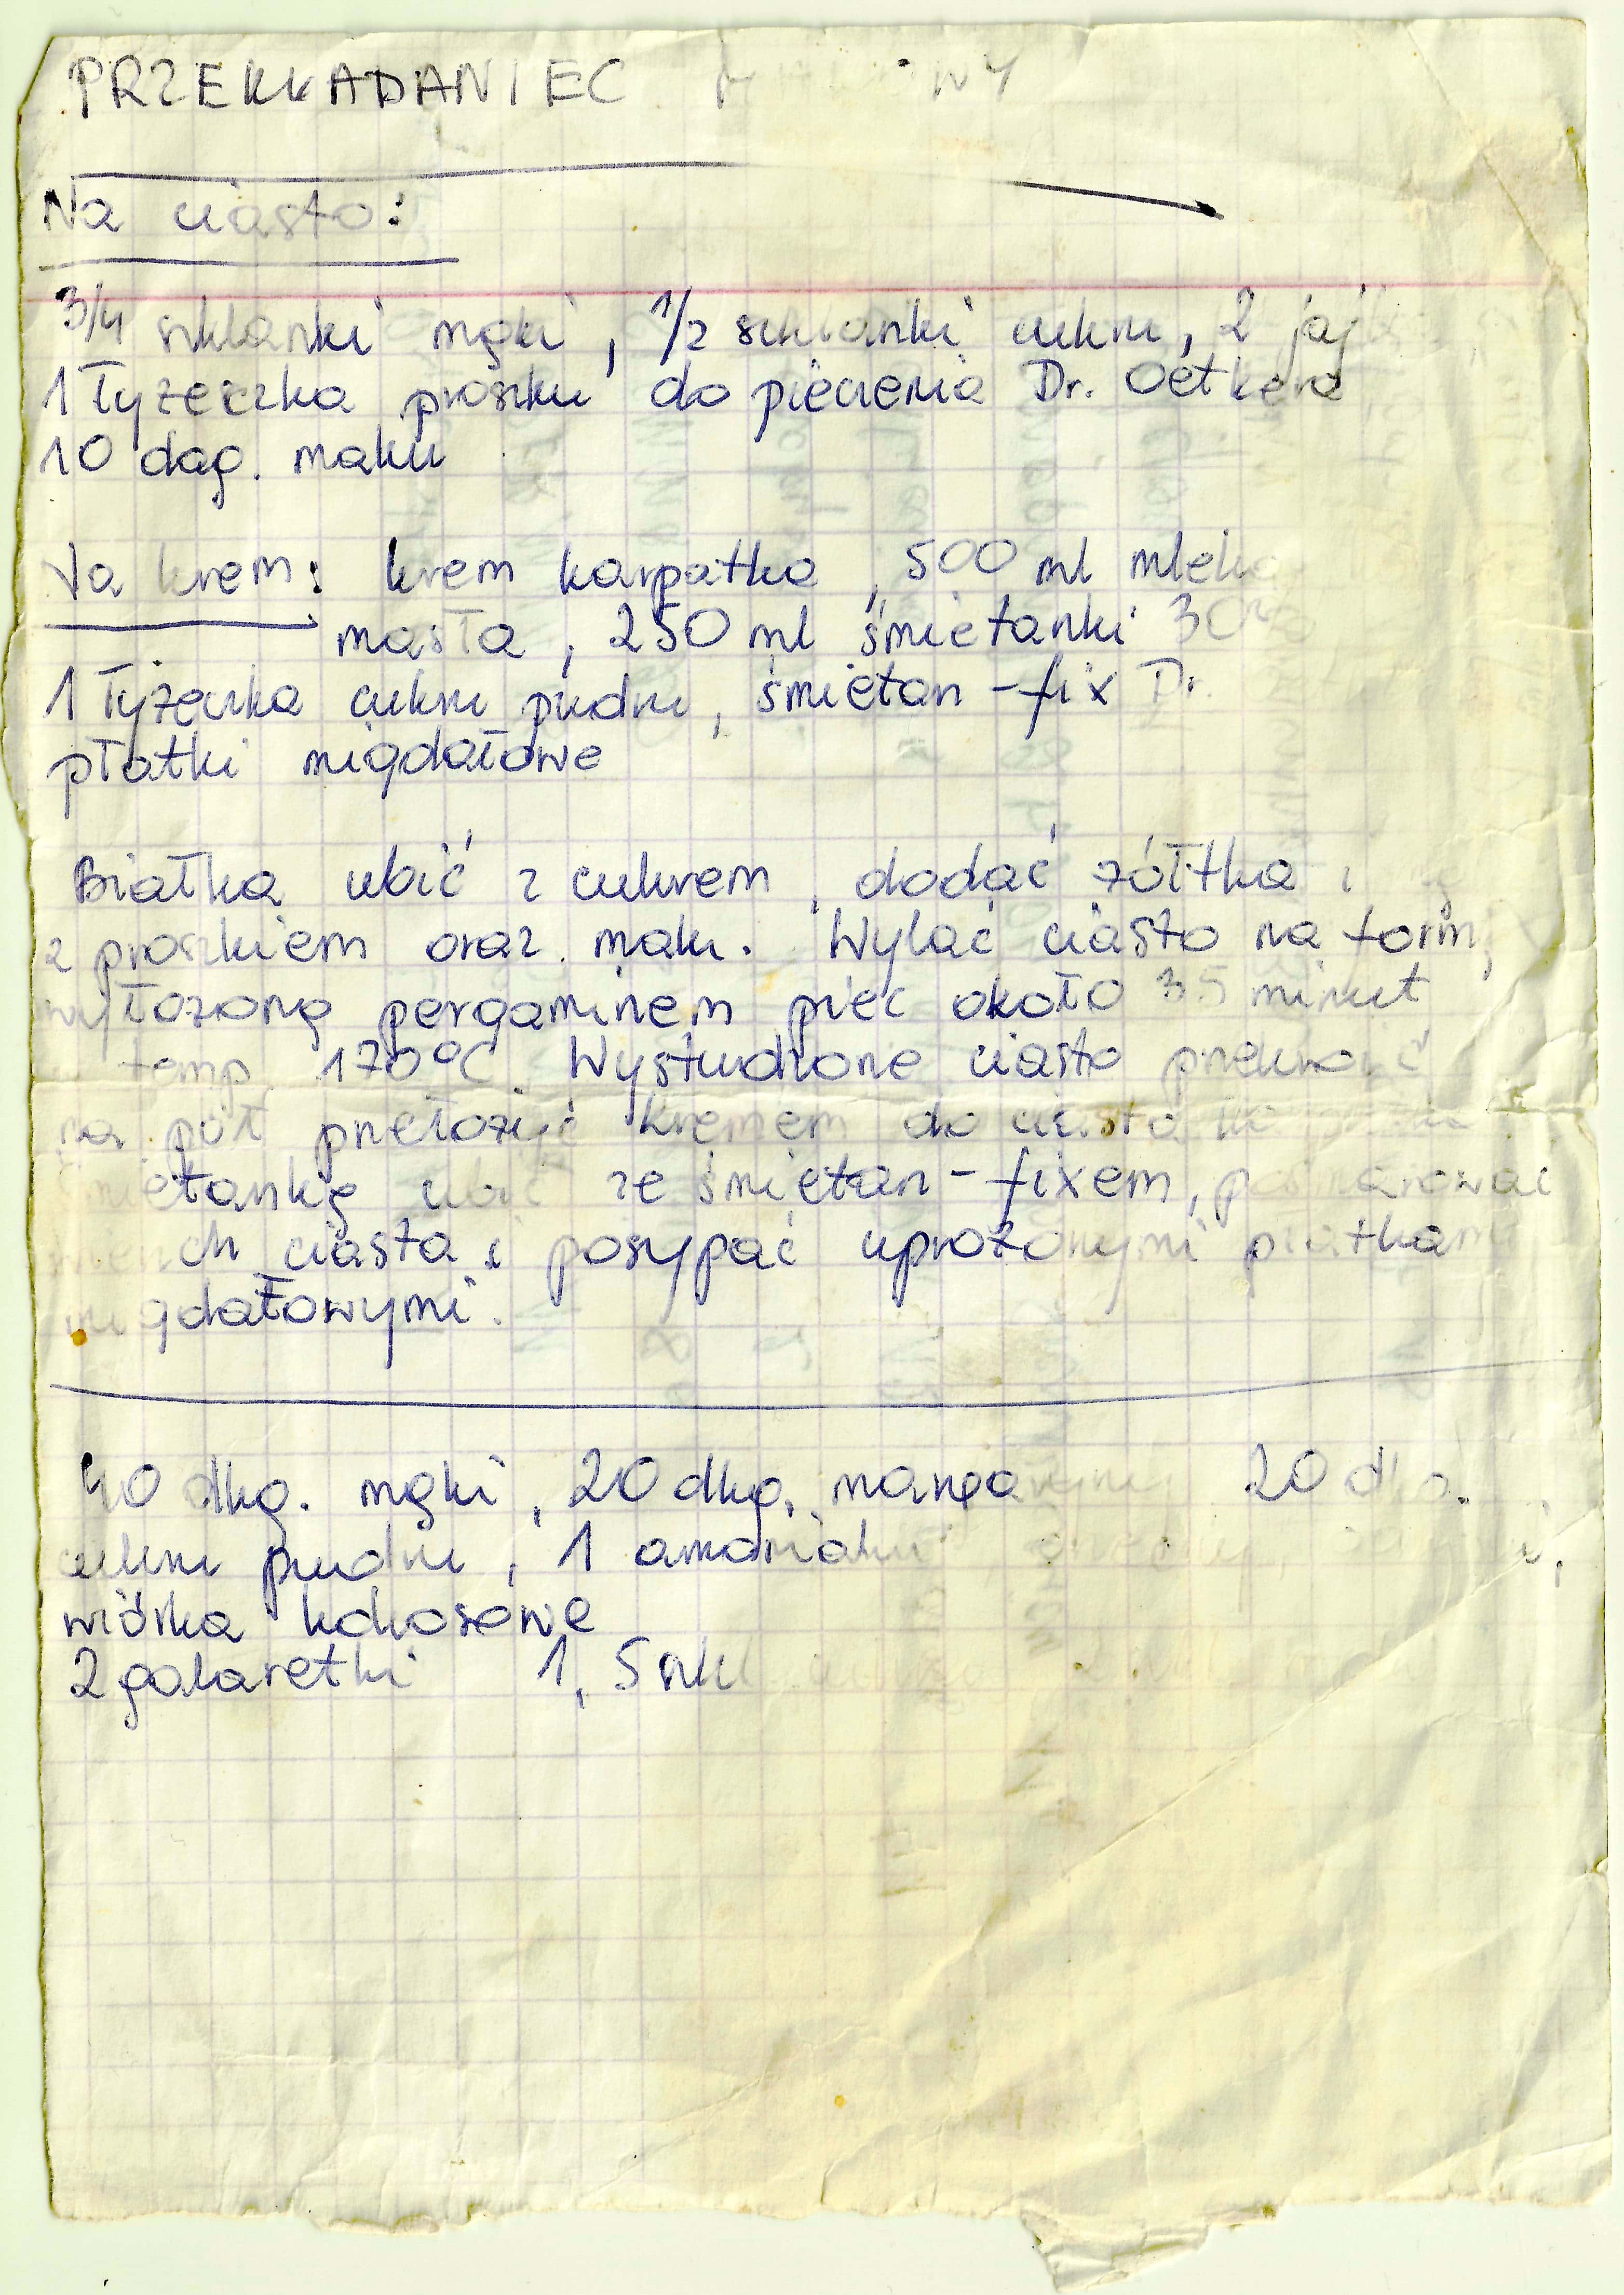 PRZEKŁADANIEC
Na ciasto:
3/4 szklanki mąki, 1/2 szklanki cukru, 2 jaj
1 łyżeczka proszku do pieczenia Dr. Oetkera
10 dag. maku
Na krem: krem karpatka, 500 ml mleka
masła, 250 ml śmietanki
1 łyżeczka cukru pudru, śmietan-fix Dr.
płatki migdałowe
Białka ubić z cukrem, dodać żółtka i
z proszkiem oraz mak. Wylać ciasto na formę
wyłożoną pergaminem piec około 35 minut
temp 170°C. Wystudzone ciasto przekroić
na pół przełożyć kremem do ciasta
śmietankę ubić ze śmietan-fixem, posmarować
wierzch ciasta i posypać uprażonymi płatkami
migdałowymi.
40 dkg. mąki, 20 dkg. margaryny 20 dkg.
cukru pudru, 1 amoniaku
wiórka kokosowe
2 galaretki 1,5 szkl